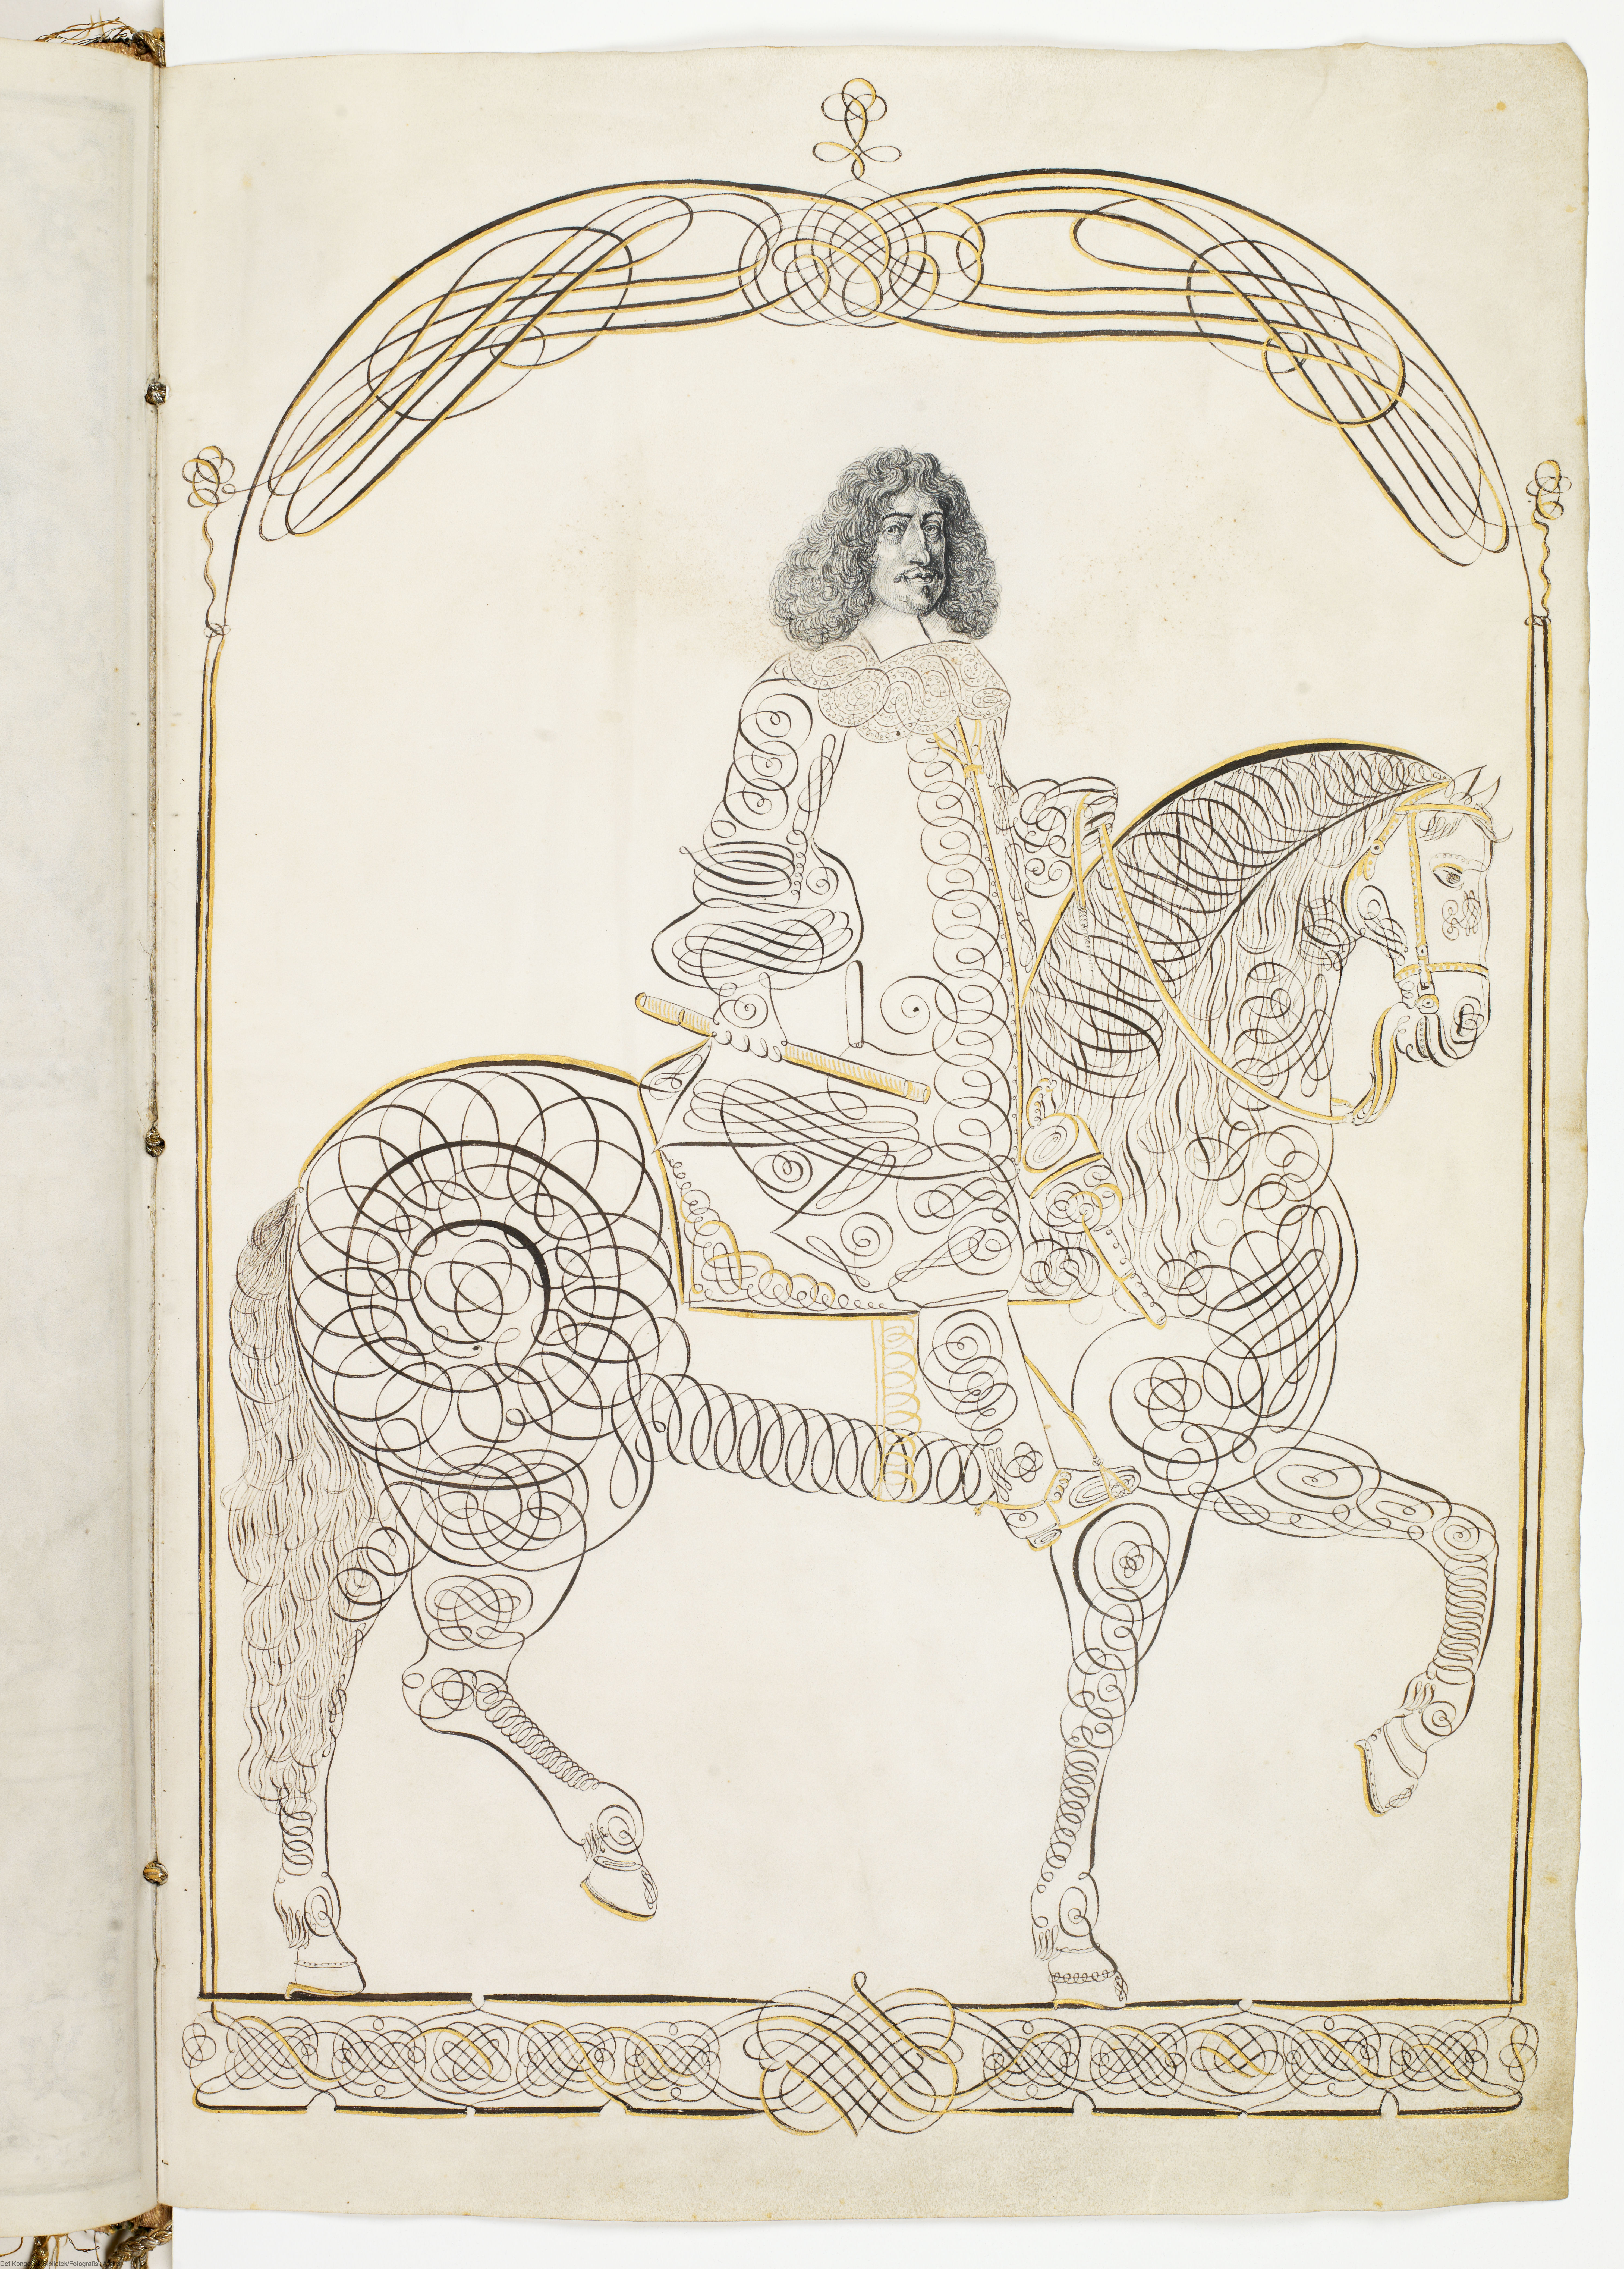 Det Kongelige Bibliotek/Fotografisk